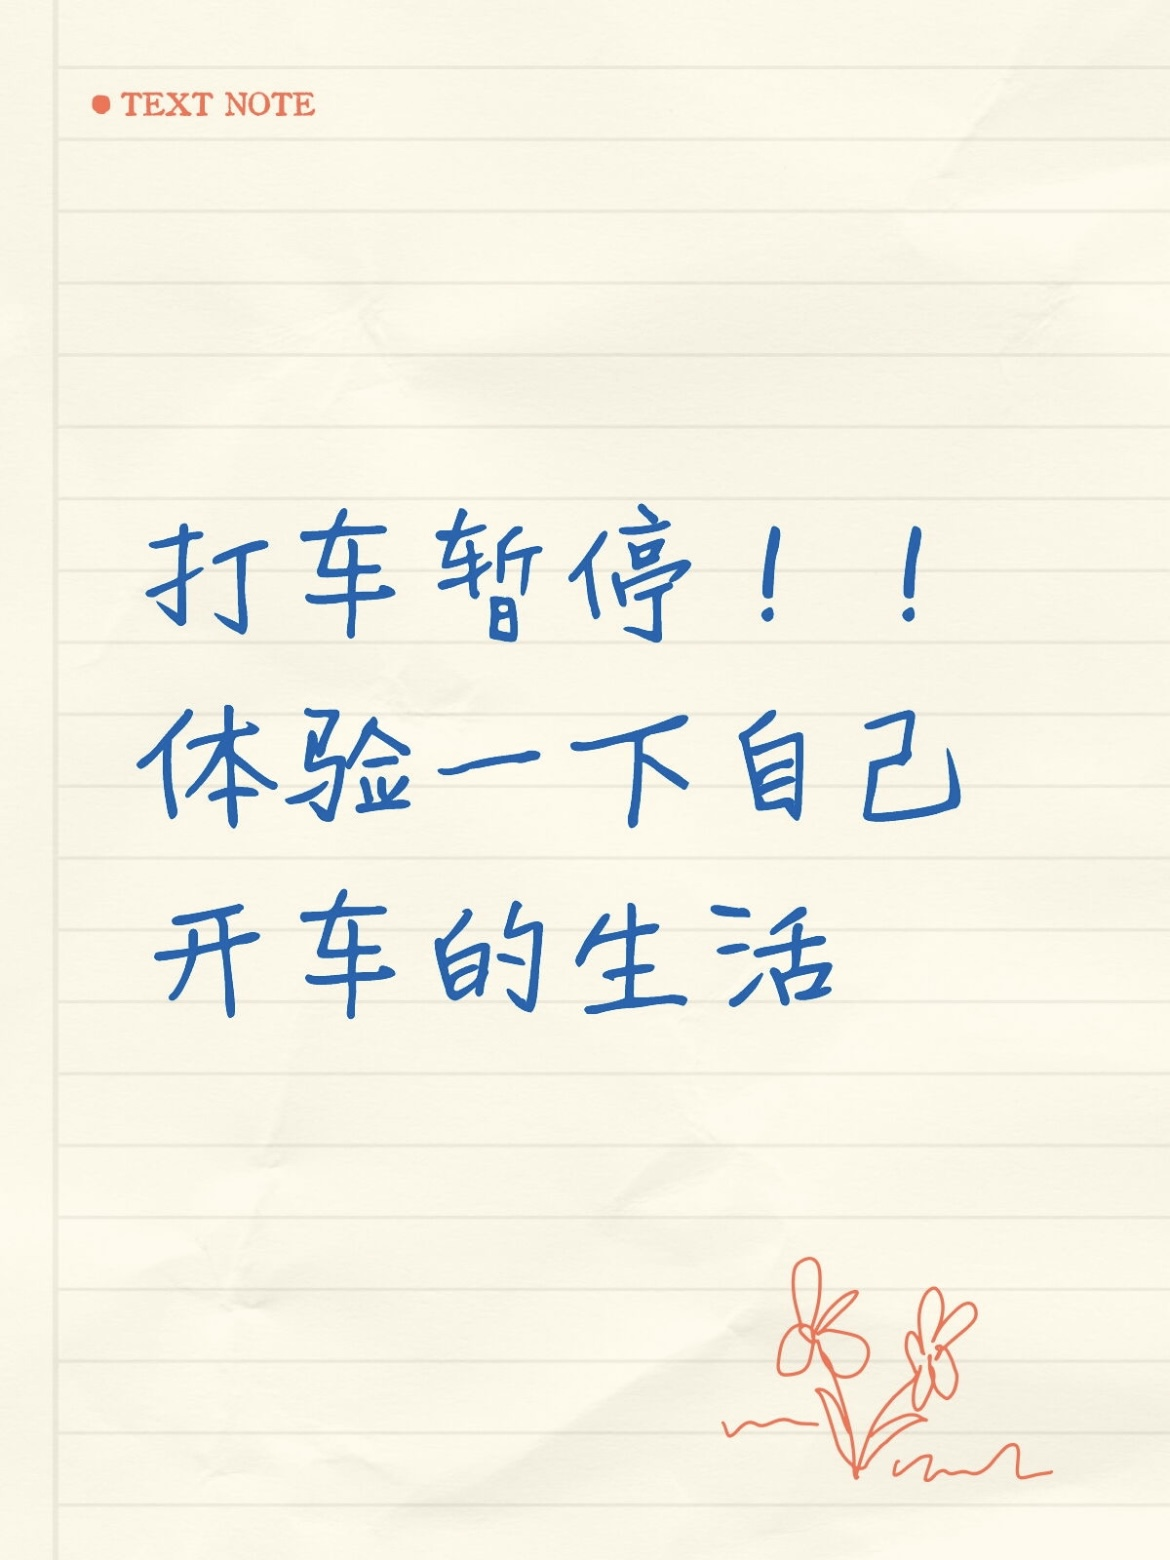 TEXT NOTE
打车暂停！！
体验一下自己
开车的生活